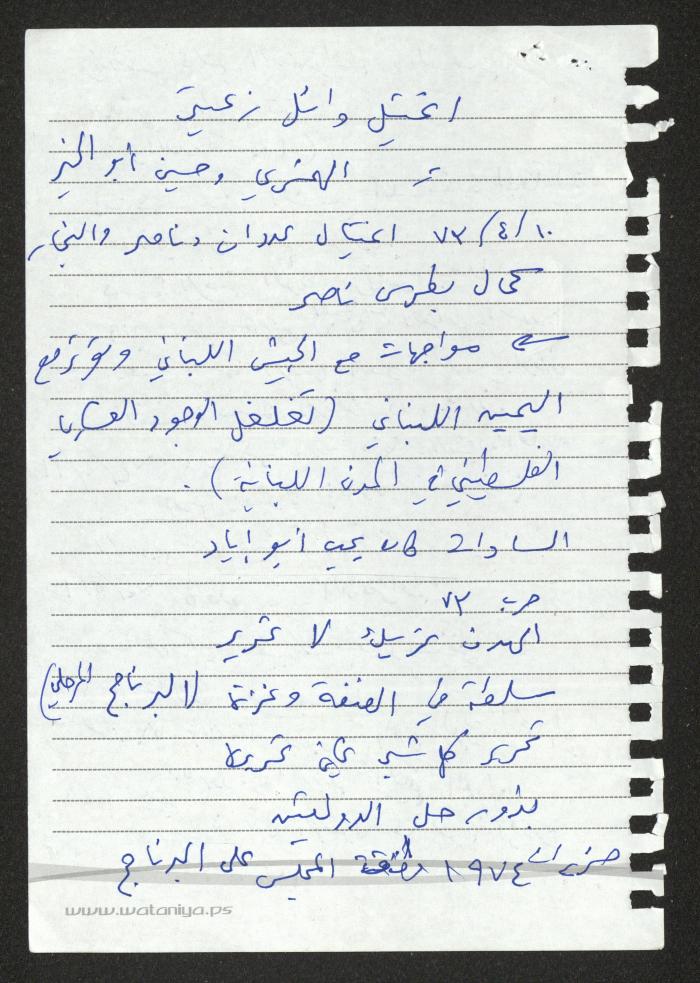 اغتيل وائل زعيتر
= الهمشري وحسين أبو الخير
١٠/٤/٧٣ اغتيال عدوان وناصر والنجار
كمال بطرس ناصر
مواجهات مع الجيش اللبناني وتوتر مع
اليمين اللبناني (تغلغل الوجود العسكري
الفلسطيني في المدن اللبنانية).
السادات كان يحب أبو إياد
حرب ٧٣
الهدف تحريك لا تحرير
سلطة في الضفة وغزة (البرنامج المرحلي)
تحرير كل شبر
بذور حل الدولتين
حزيران ١٩٧٤ المجلس على البرنامج
www.wataniya.ps